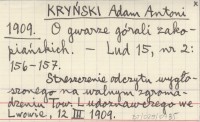 KRYŃSKI Adam Antoni
1909. O gwarze górali zako-
piańskich. — Lud 15, nr 2:
156-157.
Streszczenie odczytu wygło-
szonego na walnym zgroma-
dzeniu Tow. Ludoznawczego we
Lwowie, 12 III 1909.